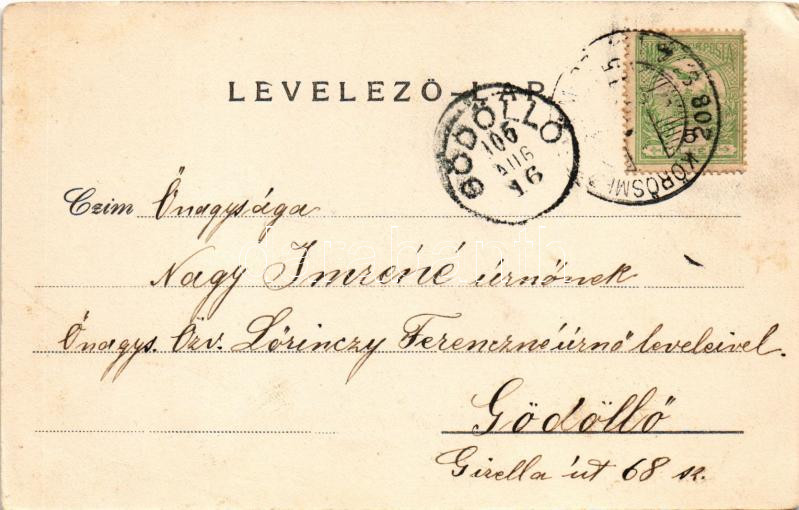 LEVELEZŐ-LAP
GÖDÖLLŐ
906 AUG 16
KÖRÖSM
Czim Őnagysága
Nagy Imréné úrnőnek
Őnagys. Özv. Lőrinczy Ferenczné úrnő leveleivel.
Gödöllő
Gizella út 68 sz.